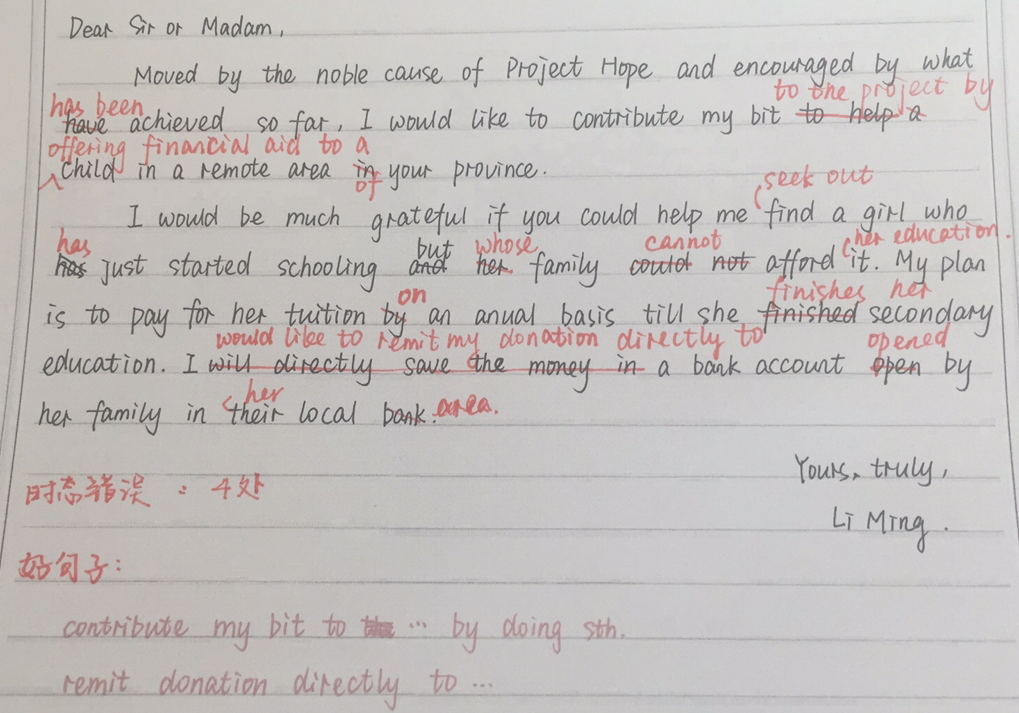 Dear Sir or Madam,
Moved by the noble cause of Project Hope and encouraged by what
has been to the project by
have achieved so far, I would like to contribute my bit to help a
offering financial aid to a
child in a remote area in your province.
of
seek out
I would be much grateful if you could help me find a girl who
has but whose cannot her education.
has just started schooling and her family could not afford it. My plan
on finishes her
is to pay for her tuition by an anual basis till she finished secondary
would like to remit my donation directly to opened
education. I will directly save the money in a bank account open by
her
her family in their local bank. area.
时态错误：4处
Yours, truly,
Li Ming.
好句子：
contribute my bit to the ... by doing sth.
remit donation directly to ...